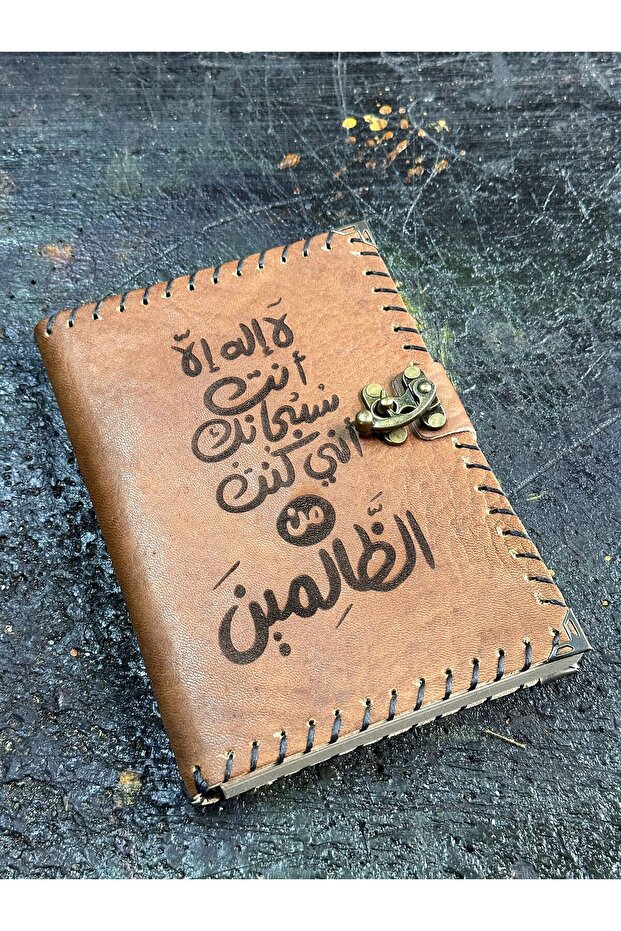 لَا إله إلّا
أنت
سبحانك
أني كنت
من
الظَّالِمينَ